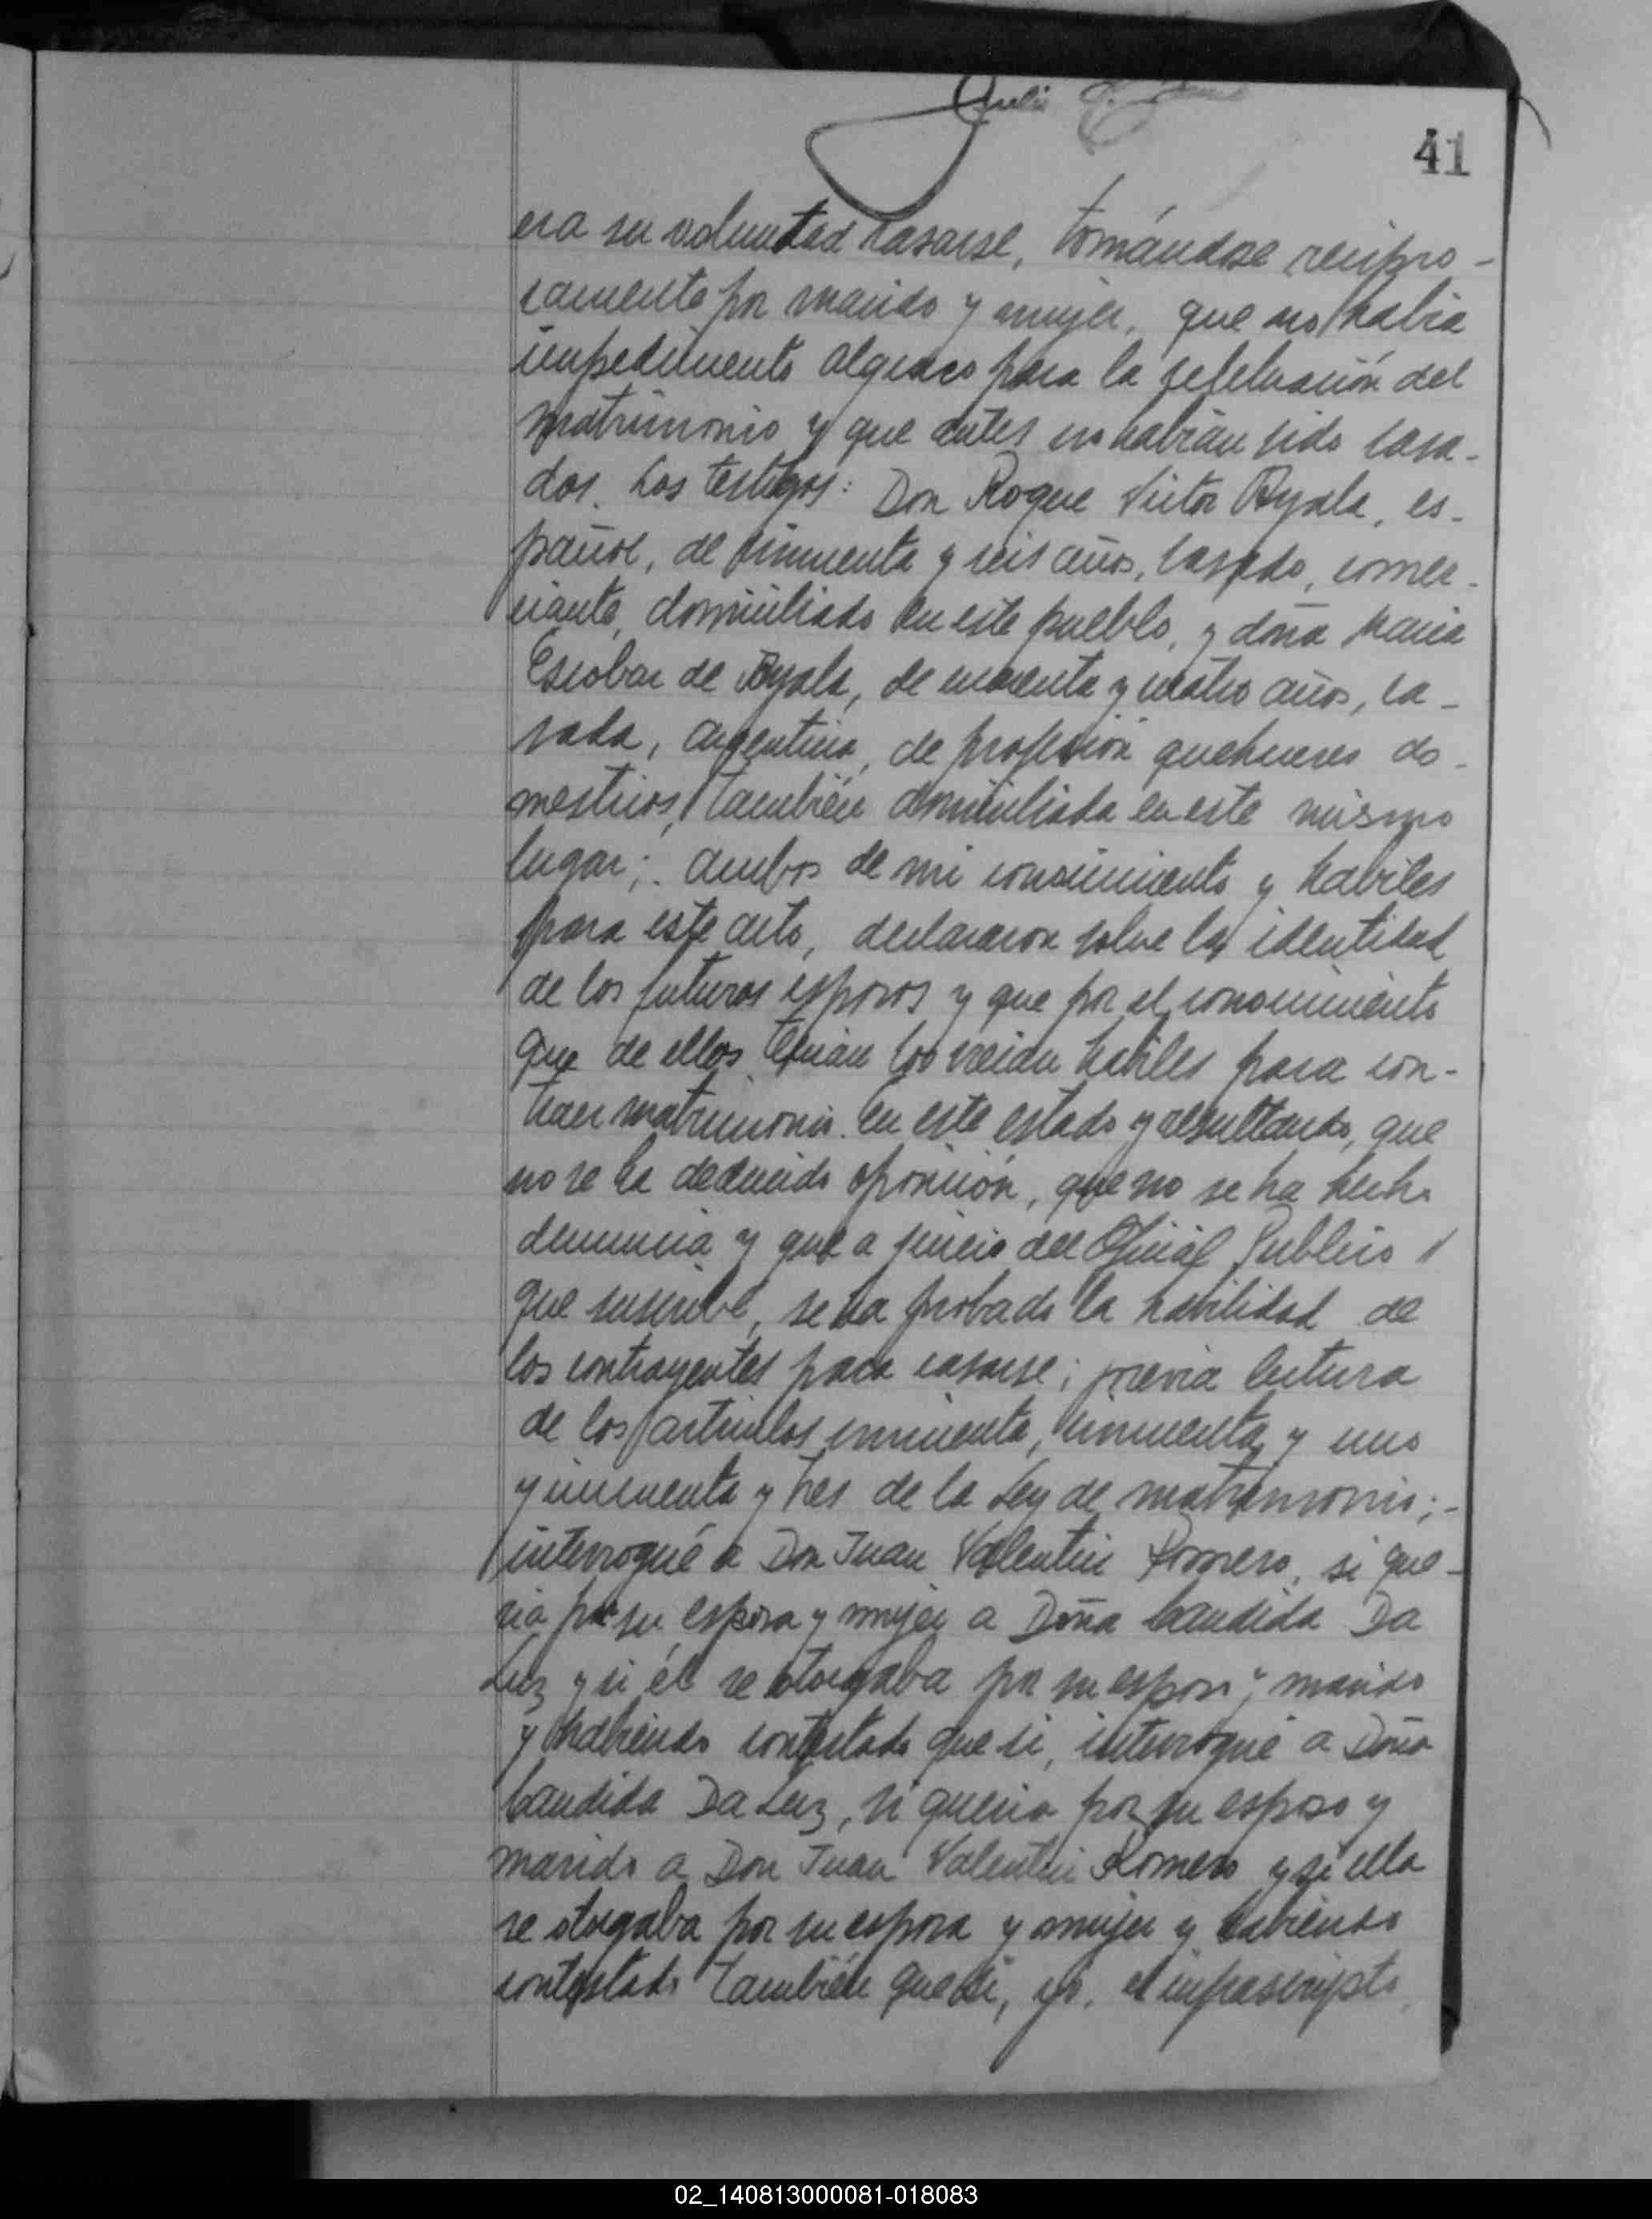 Julio
41
era su voluntad casarse, tomándose recipro-
camente por marido y mujer, que no habia
impedimento alguno para la celebración del
matrimonio y que antes no habian sido casa-
dos. Los testigos: Don Roque Victor Ayala, es-
pañol, de cincuenta y seis años, casado, comer-
ciante, domiciliado en este pueblo, y doña Maria
Escobar de Ayala, de cuarenta y cuatro años, ca-
sada, argentina, de profesión quehaceres do-
mesticos, también domiciliada en este mismo
lugar; ambos de mi conocimiento y habiles
para este acto, declararon sobre la identidad
de los futuros esposos y que por el conocimiento
que de ellos tenian los creian habiles para con-
traer matrimonio. En este estado y resultando, que
no se ha deducido oposición, que no se ha hecho
denuncia y que a juicio del Oficial Publico
que suscribe, se ha probado la habilidad de
los contrayentes para casarse; previa lectura
de los articulos cincuenta, cincuenta y uno
y cincuenta y tres de la Ley de matrimonio;-
interrogué a Don Juan Valentin Romero, si que-
ria por su esposa y mujer a Doña Candida Da
Luz y si él se otorgaba por su esposo y marido
y habiendo contestado que si, interrogué a Doña
Candida Da Luz, si queria por su esposo y
marido a Don Juan Valentin Romero y si ella
se otorgaba por su esposa y mujer y habiendo
contestado también que si, yo, el infrascripto,
02_140813000081-018083